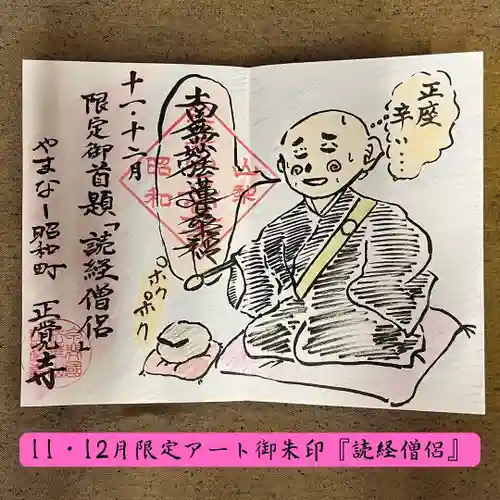 正座
辛い…
南無妙法蓮華経
山梨
昭和
ポク
ポク
十一・十二月
限定御首題「読経僧侶」
やまなし昭和町 正覚寺
11・12月限定アート御朱印『読経僧侶』